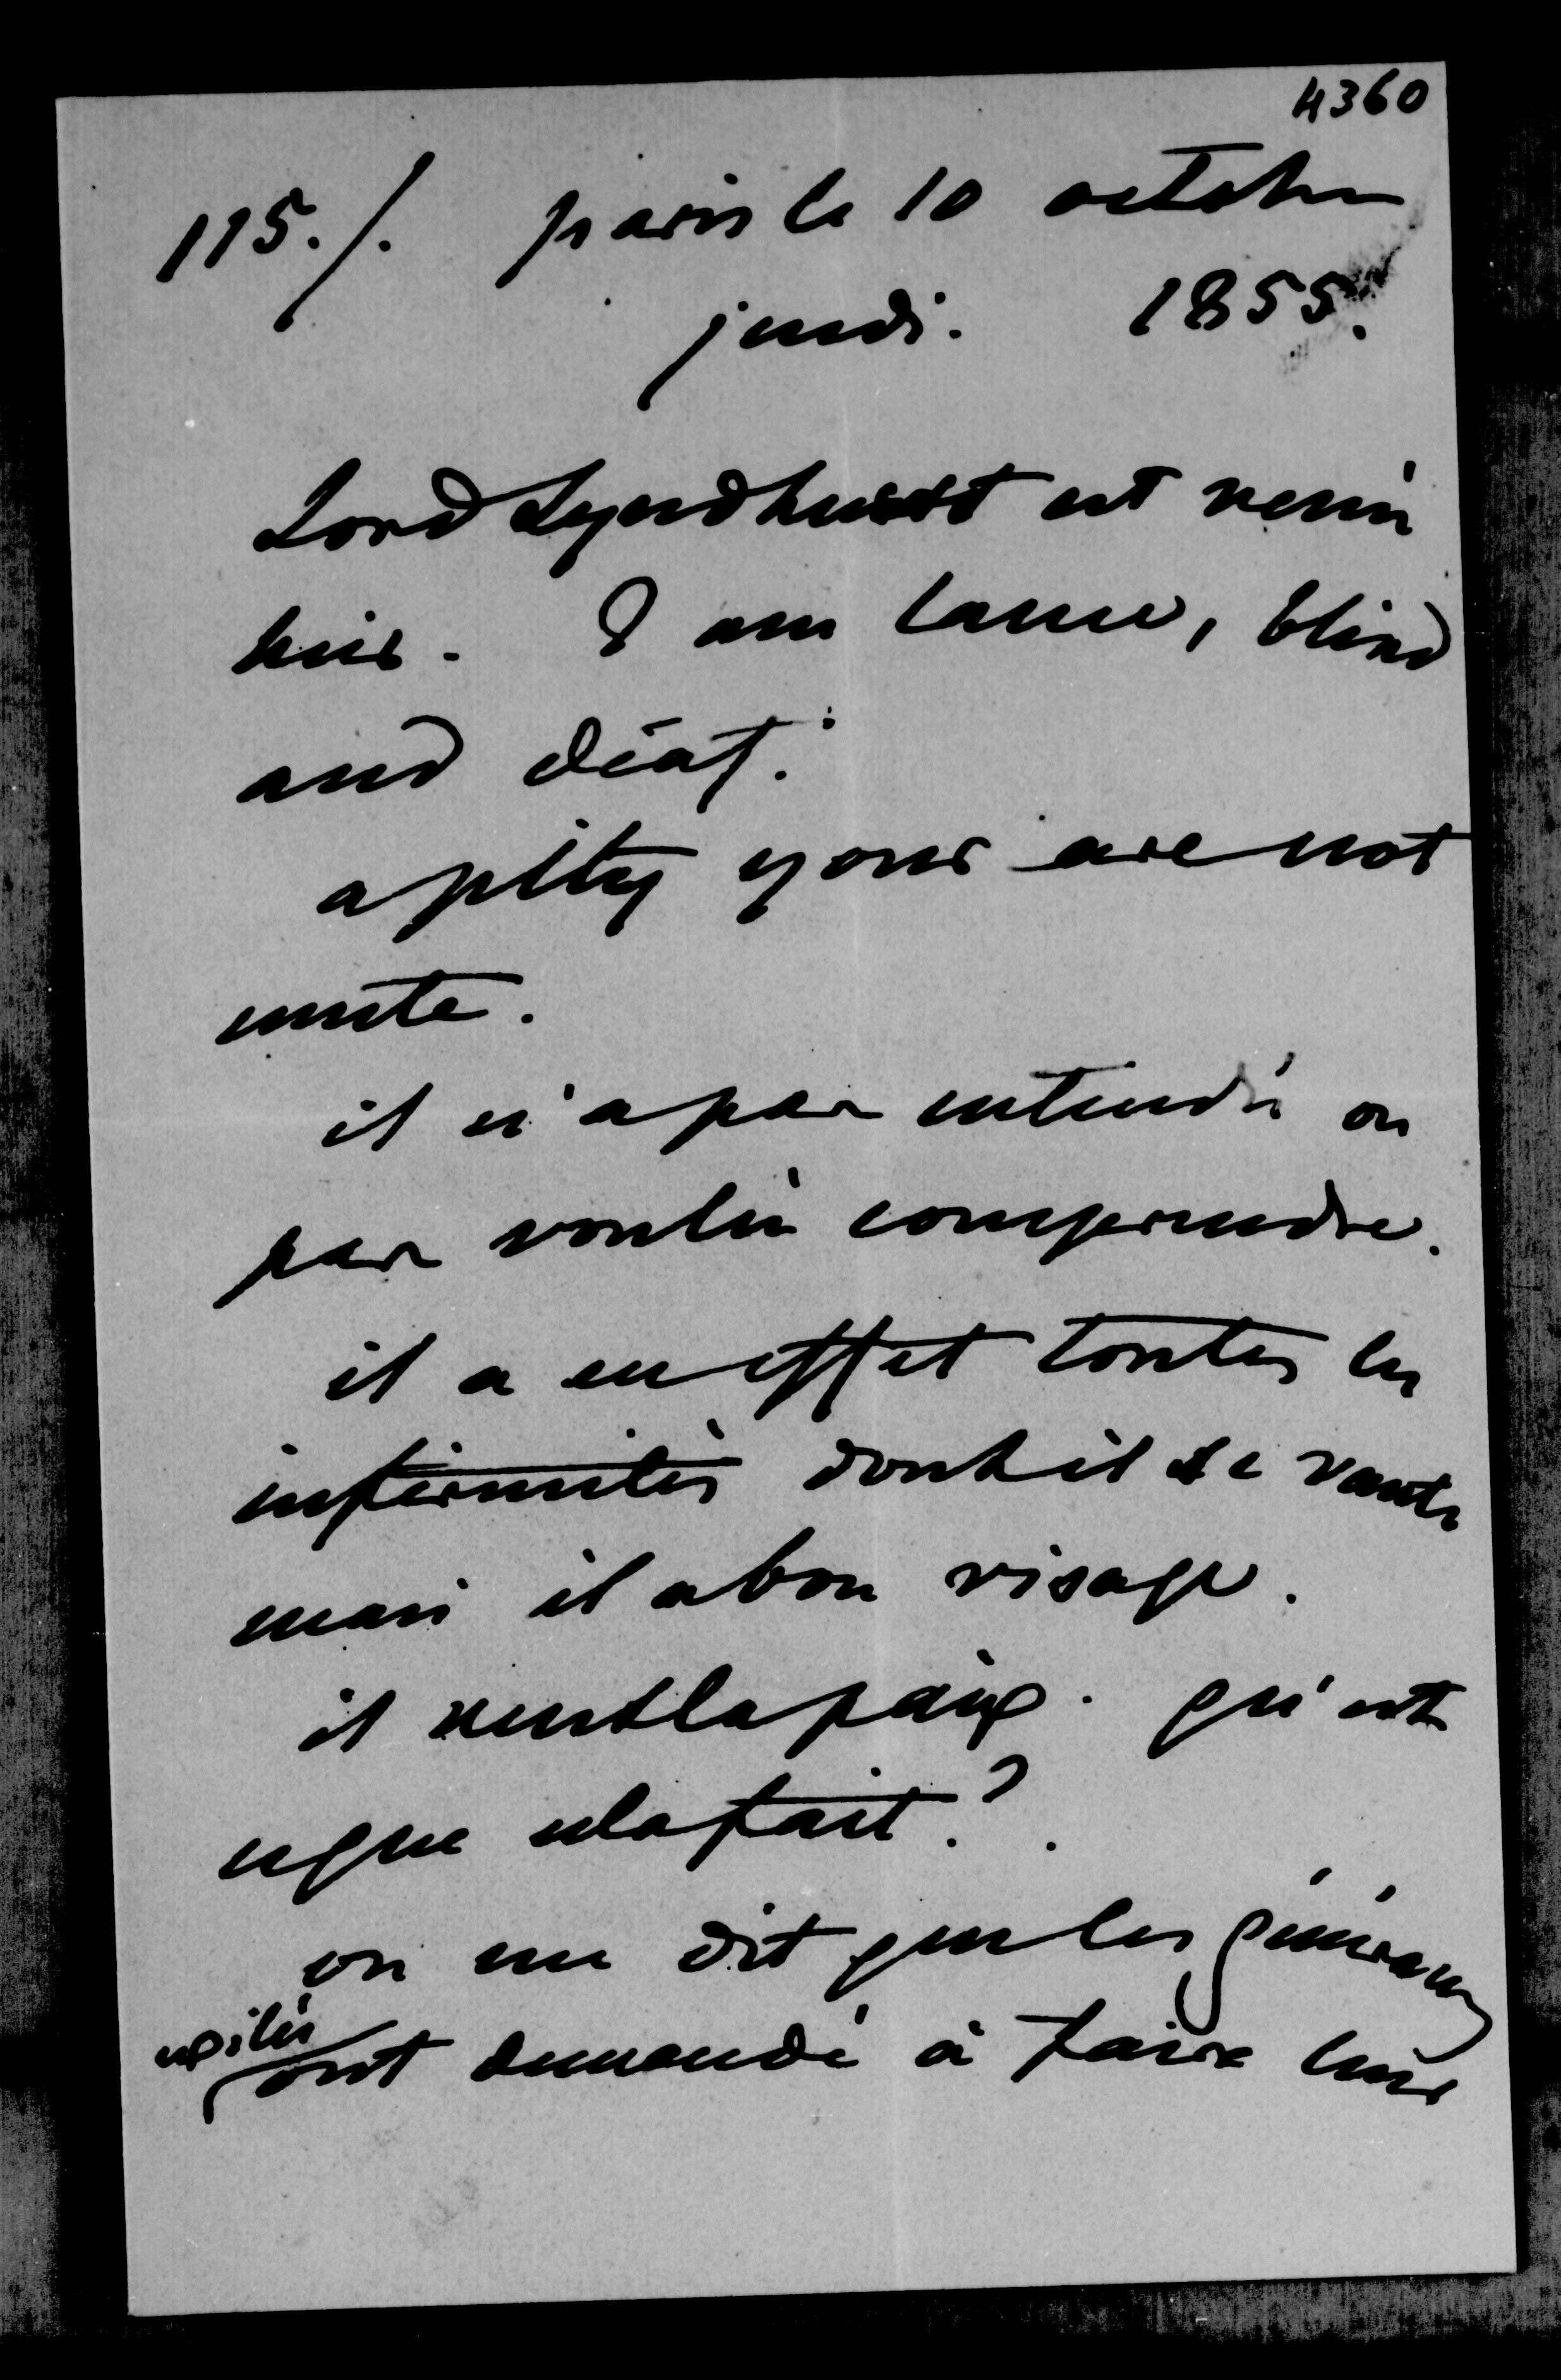 4360
115./. paris le 10 octobre
jeudi. 1855.
Lord Lyndhurst est venu
hier. I am lame, blind
and deaf.
a pity your are not
mute.
il n'a pas entendu ou
pas voulu comprendre.
il a en effet toutes les
infirmités dont il se vante
mais il a bon visage.
il veut la paix. qu'est
ce que cela fait ?
on me dit que les généraux
exilés
ont demandé à faire leur